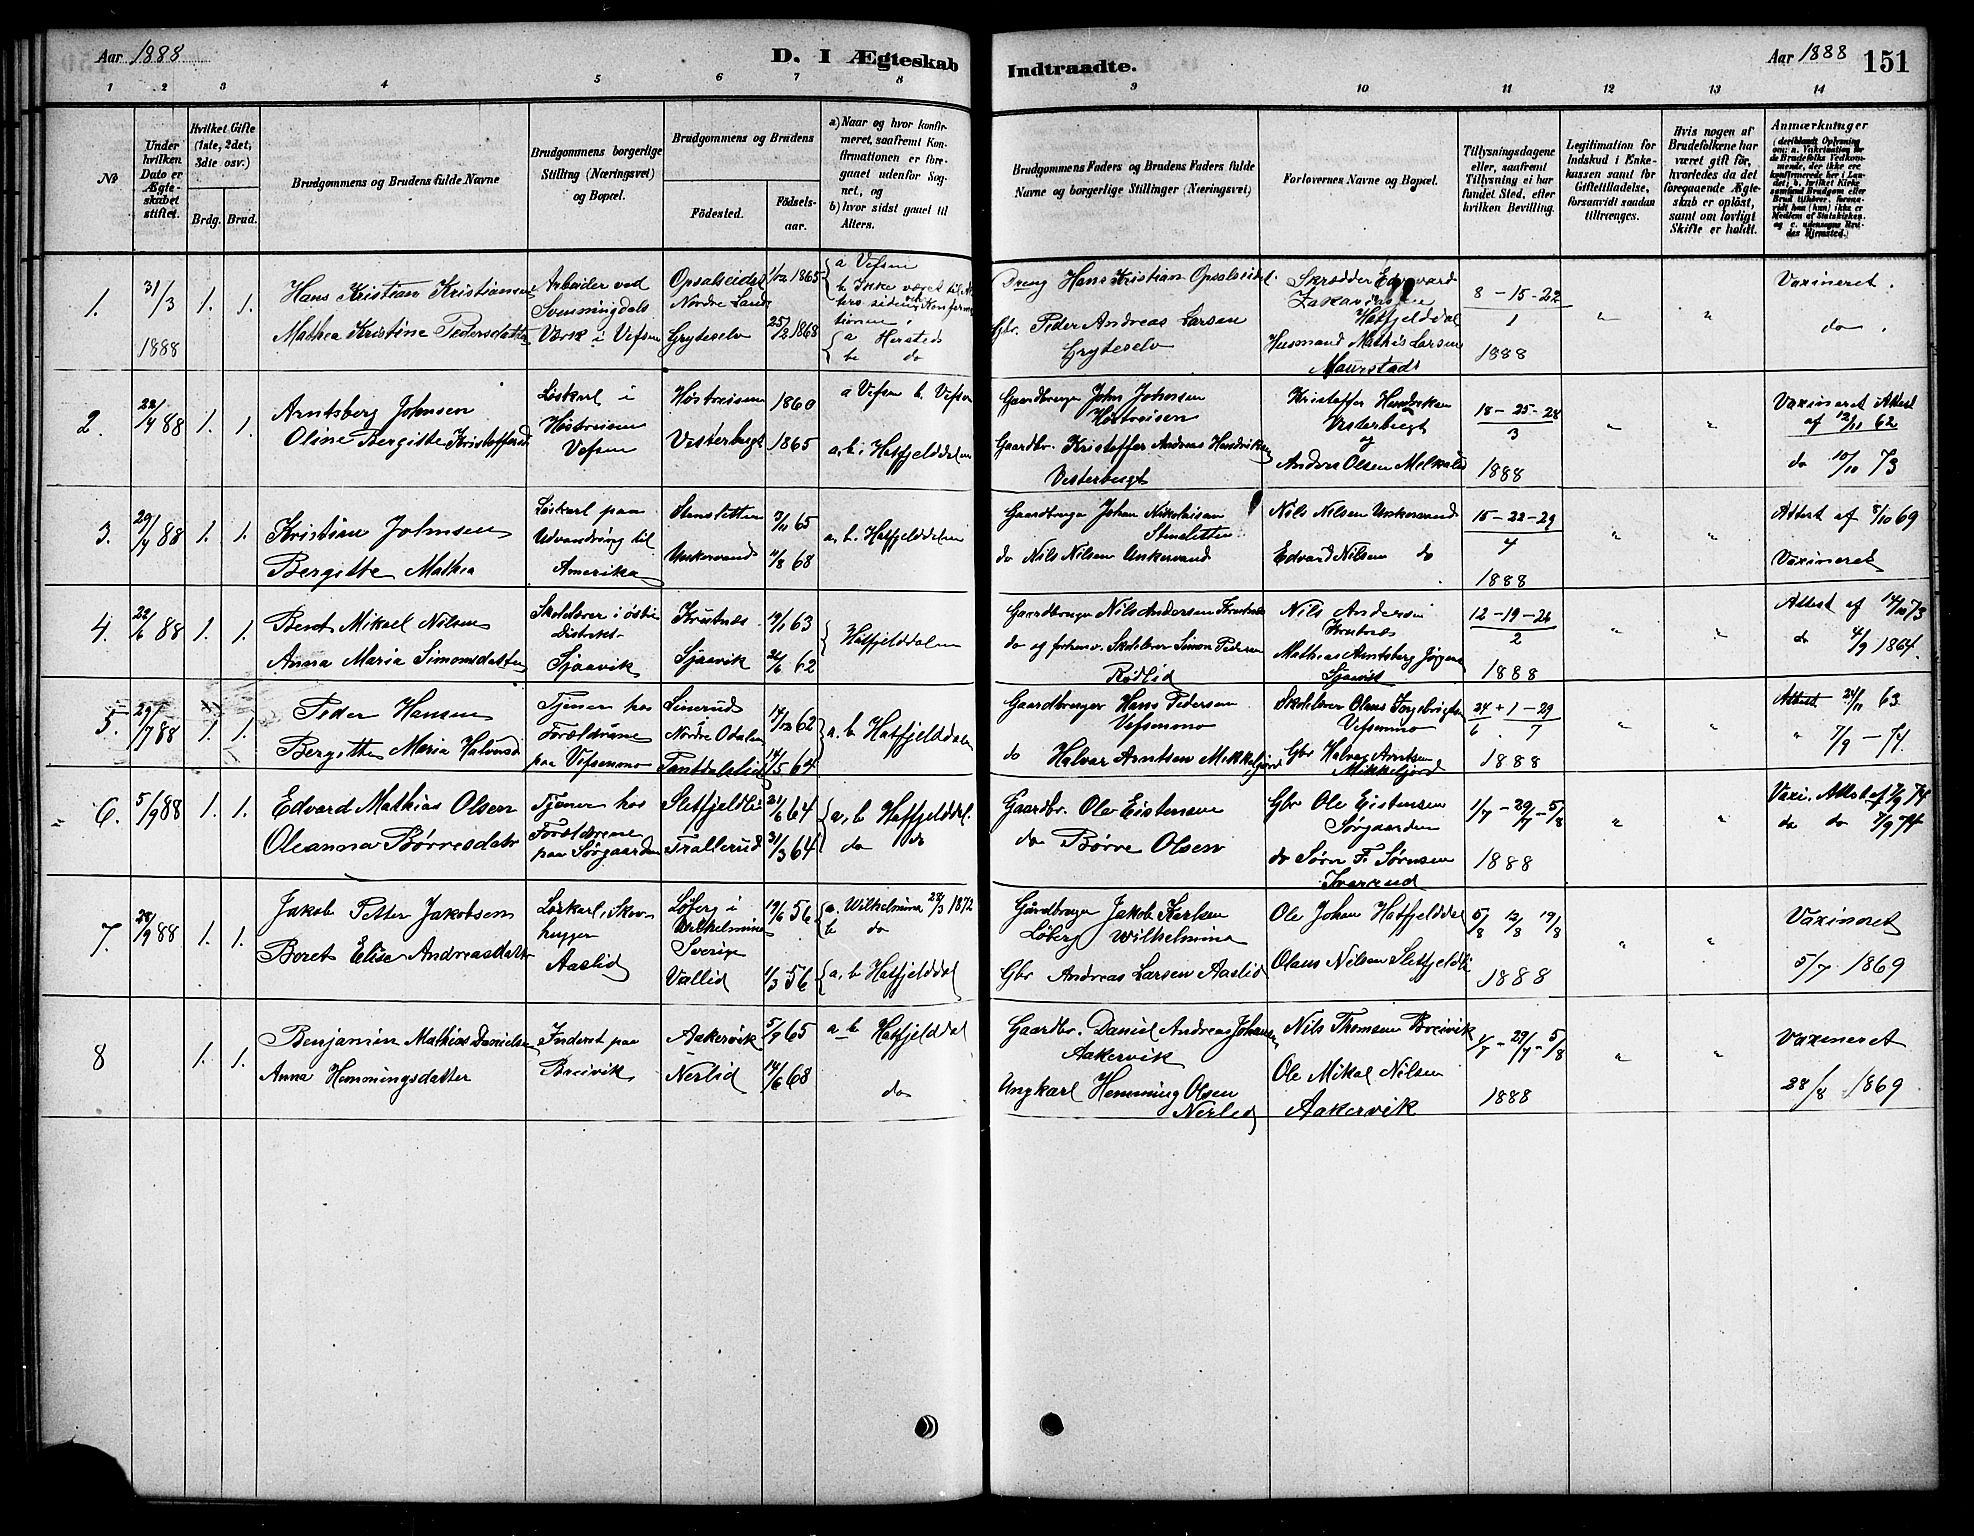 Aar 1888
D. I Ægteskab Indtraadte.
Aar 1888
151
1 2 3 4 5 6 7 8 9 10 11 12 13 14
No
Under hvilken Dato er Ægteskabet stiftet.
Hvilket Gifte (1ste, 2det, 3die osv.)
Brdg. Brud.
Brudgommens og Brudens fulde Navne
Brudgommens borgerlige Stilling (Næringsvei) og Bopæl.
Brudgommens og Brudens
Fødested.
Fødselsaar.
a) Naar og hvor konfirmeret, saafremt Konfirmationen er foregaaet udenfor Sognet, og
b) hvor sidst gaaet til Alters.
Brudgommens Faders og Brudens Faders fulde Navne og borgerlige Stillinger (Næringsvei)
Forlovernes Navne og Bopæl.
Tillysningsdagene eller, saafremt Tillysning ei har fundet Sted, efter hvilken Bevilling.
Legitimation for Indskud i Enkekassen samt for Giftetilladelse, forsaavidt saadan tiltrænges.
Hvis nogen af Brudefolkene har været gift før, hvorledes da det foregaaende Ægteskab er opløst, samt om lovligt Skifte er holdt.
Anmærkninger
1. 31/3 1888 1. 1.
Hans Kristian Kristiansen
Mathea Kristine Pedersdatter
Arbeider ved
Svenningdals
Værk i Vefsen
Opsalseidet
Nordre Land
Gryteselv
1/12 1865
25/2 1868
a Vefsen
b Ikke været til Al
ters siden Konfirma
tionen
a Hersted
b do
Dreng Hans Kristian Opsalseidet
Gbr. Peder Andreas Larsen
Gryteselv
Skrædder Edevard
Zakariassen
Hatfjelddal
Husmand Mathis Larsen
Maurstad
8 - 15 - 22
1
1888
" "
Vaxineret.
do.
2. 22/4 88 1. 1.
Arntsberg Johnsen
Oline Bergitte Kristoffersd
Løskarl i
Høstreisen
Vefsen
Høstreisen
Vesterbugt
1860
1865
a Vefsen b. Vefsen
a, b: Hatfjelddalen
Gaardbruger John Johnsen
Høstreisen
Gaardbr. Kristoffer Andreas Hendriksen
Vesterbugt
Kristoffer Hendriksen
Vesterbugt
og
Anders Olsen
18 - 25 - 28
3
1888
" "
Vaxineret Attest
af 12/11 62
do 10/10 73
3. 29/4 88 1. 1.
Kristian Johnsen
Bergitte Mathea
Løskarl paa
Udvandring til
Amerika
Stensletten
Unkervand
3/11 65
11/8 68
a, b. Hatfjelddalen
Gaardbruger Johan Nikolaisen
Stensletten
do Nils Nilsen Unkervand
Nils Nilsen Unkervand
Edvard Nilsen do
15 - 22 - 29
4
1888
" "
Attest af 8/10 69
Vaxineret
4. 22/6 88 1. 1.
Bent Mikael Nilsen
Anna Maria Simonsdatter
Skolelærer i østre
Distrikt
Sjaavik
Krutnæs
Sjaavik
19/11 63
26/6 62
Hatfjelddalen
Gaardbruger Nils Andersen Krutnæs
do og forhenv. Skolelærer Simon Pedersen
Rødlid
Nils Andersen
Krutnæs
Mathias Arntsberg Jørgens
Sjaavik
12 - 19 - 26
2
1888
" "
Attest af 14/10 73
do 4/9 1864.
5. 29/7 88 1. 1.
Peder Hansen
Bergitte Maria Halvorsd
Tjener hos
Forældrene
paa Vefsenmo
Linerud
Nordre Odalen
17/12 62
14/5 64
a, b Hatfjelddalen
Gaardbruger Hans Pedersen
Vefsenmo
do Halvar Arntsen Mikkeljord
Skolelærer Olaus Ingebrigtsen
Vefsenmo
Gbr Halvar Arntsen
Mikkeljord
24 + 1 - 29
6 7
1888
" "
Attest 24/11 63
" 7/9 - 74.
6. 5/9 88 1. 1.
Edvard Mathias Olsen
Oleanna Børresdatr
Tjener hos
Forældrene
paa Sørgaarden
Sletfjeldli
Trallerud
21/6 64
31/3 64
a, b Hatfjelddal.
do do
Gaardbr. Ole Eistensen
do Børre Olsen
Gbr Ole Eistensen
Sørgaarden
do Sørn F. Sørnsen
Ivarrud
1/7 - 29/7 - 5/8
1888
" "
Vaxi. Attest af 7/9 74
do do 7/9 74
7. 28/9 88 1. 1.
Jakob Petter Jakobsen
Beret Elise Andreasdatter
Løskarl, Skov
hugger
Aaslid
Løberg i
Wilhelmina
Sverige
Vallid
19/6 56
11/3 56
a. Wilhelmina 28/3 1872
b do
a, b Hatfjelddal
Gaardbruger Jakob Karlsen
Løberg Wilhelmina
Gbr Andreas Larsen Aaslid
Ole Johan Hatfjelddal
Olaus Nilsen Sletfjeldli
5/8 12/8 19/8
1888
" "
Vaxineret
5/7 1869
8 1. 1.
Benjamin Mathias Danielsen
Anna Hemmingsdatter
Inderst paa
Breivik
Aakervik
Nerlid
5/9 65
14/6 68
a b Hatfjelddal
do
Gaardbr. Daniel Andreas Johansen
Aakervik
Ungkarl Hemming Olsen
Nerlid
Nils Thomsen Breivik
Ole Mikal Nilsen
Aakervik
1/7 - 29/7 - 5/8
1888
" "
Vaxineret
28/8 1869